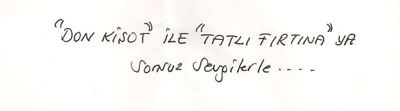 "DON KİŞOT" İLE "TATLI FIRTINA" YA
Sonsuz Sevgilerle....